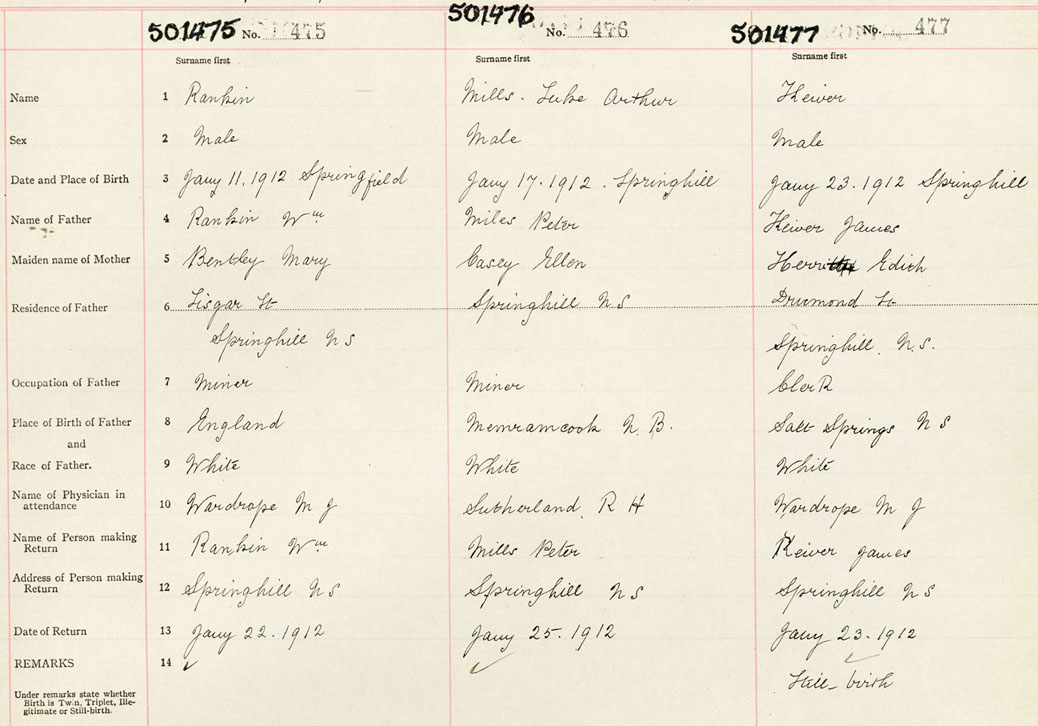 501475 No. 475 501476 No. 476 501477 No. 477
Surname first Surname first Surname first
Name 1 Rankin Mills. Luke Arthur Keiver
Sex 2 Male Male Male
Date and Place of Birth 3 Jany 11, 1912 Springfield Jany 17. 1912. Springhill Jany 23. 1912 Springhill
Name of Father 4 Rankin Wm Miles Peter Keiver James
Maiden name of Mother 5 Bentley Mary Casey Ellen Edich
Residence of Father 6 Lisgar St Springhill N S Drumond St
Springhill N S Springhill. N.S.
Occupation of Father 7 Miner Miner Clerk
Place of Birth of Father 8 England Memramcook N. B. Salt Springs N S
and
Race of Father. 9 White White White
Name of Physician in
attendance 10 Wardrope M J Sutherland. R H Wardrope M J
Name of Person making
Return 11 Rankin Wm Mills Peter Keiver James
Address of Person making
Return 12 Springhill N S Springhill N S Springhill N S
Date of Return 13 Jany 22. 1912 Jany 25. 1912 Jany 23. 1912
REMARKS 14 ✓ ✓ ✓
Still-birth
Under remarks state whether
Birth is Twin, Triplet, Ille-
gitimate or Still-birth.